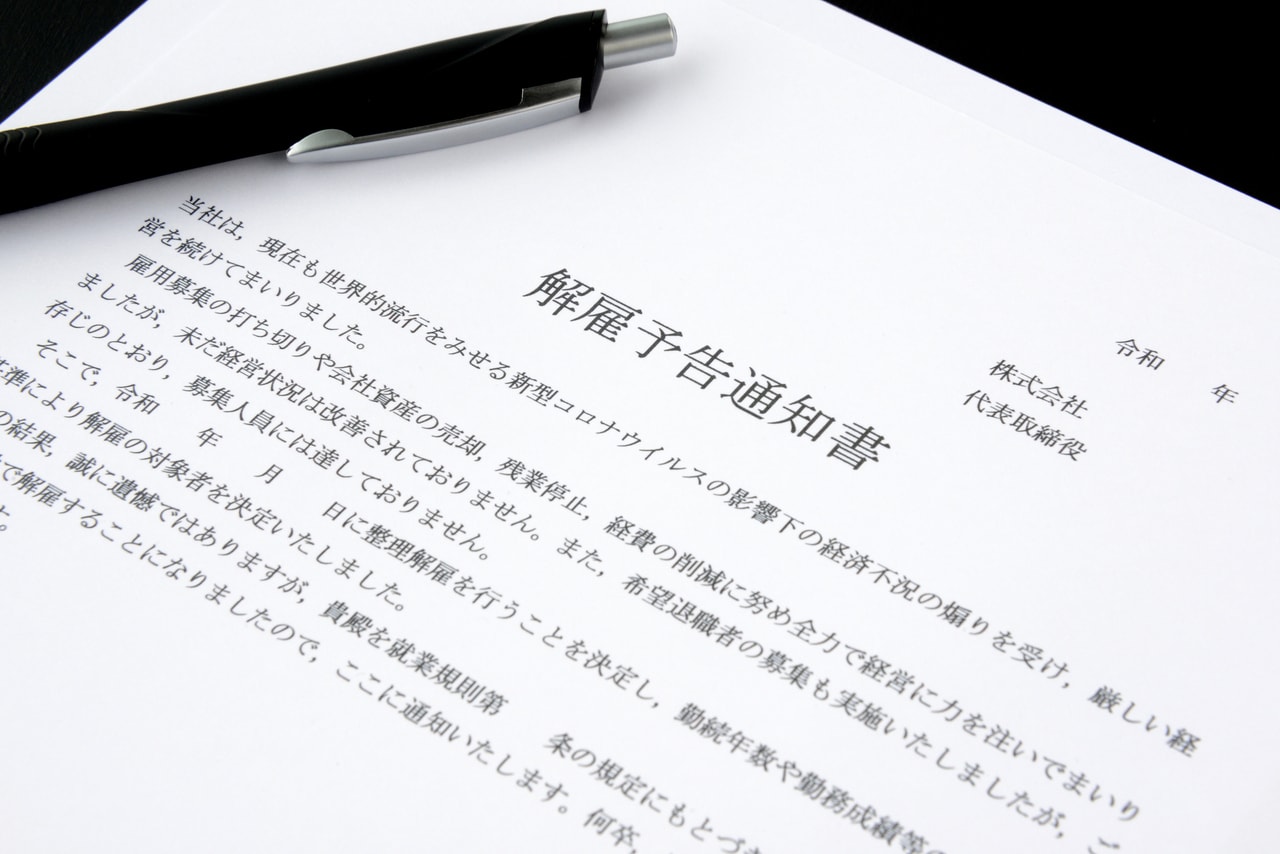 令和　　年
株式会社
代表取締役
解雇予告通知書
当社は，現在も世界的流行をみせる新型コロナウイルスの影響下の経済不況の煽りを受け，厳しい経
営を続けてまいりました。
雇用募集の打ち切りや会社資産の売却，残業停止，経費の削減に努め全力で経営に力を注いでまいり
ましたが，未だ経営状況は改善されておりません。また，希望退職者の募集も実施いたしましたが，ご
存じのとおり，募集人員には達しておりません。
そこで，令和　　年　　月　　日に整理解雇を行うことを決定し，勤続年数や勤務成績等の
基準により解雇の対象者を決定いたしました。
の結果，誠に遺憾ではありますが，貴殿を就業規則第　　条の規定にもとづき
で解雇することになりましたので，ここに通知いたします。何卒，
す。